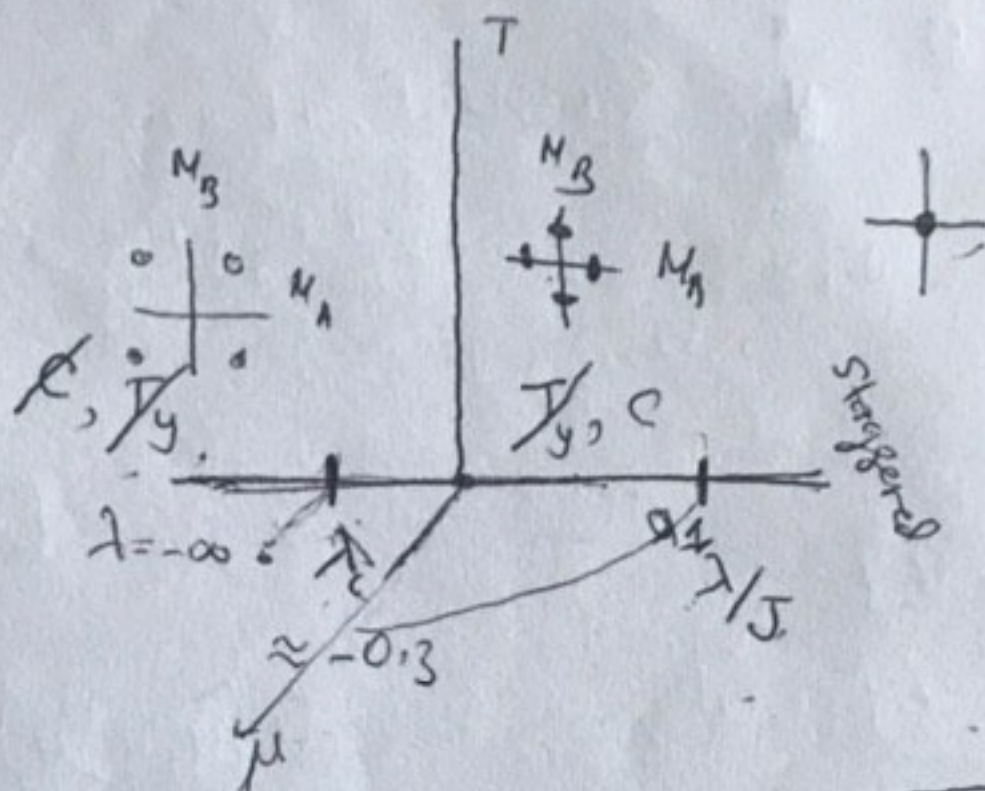 T
M_B
M_B
M_A
C, T_y
T_y, C
Staggered
λ=-∞
λ_c
1
λ/J
≈ -0.3
μ